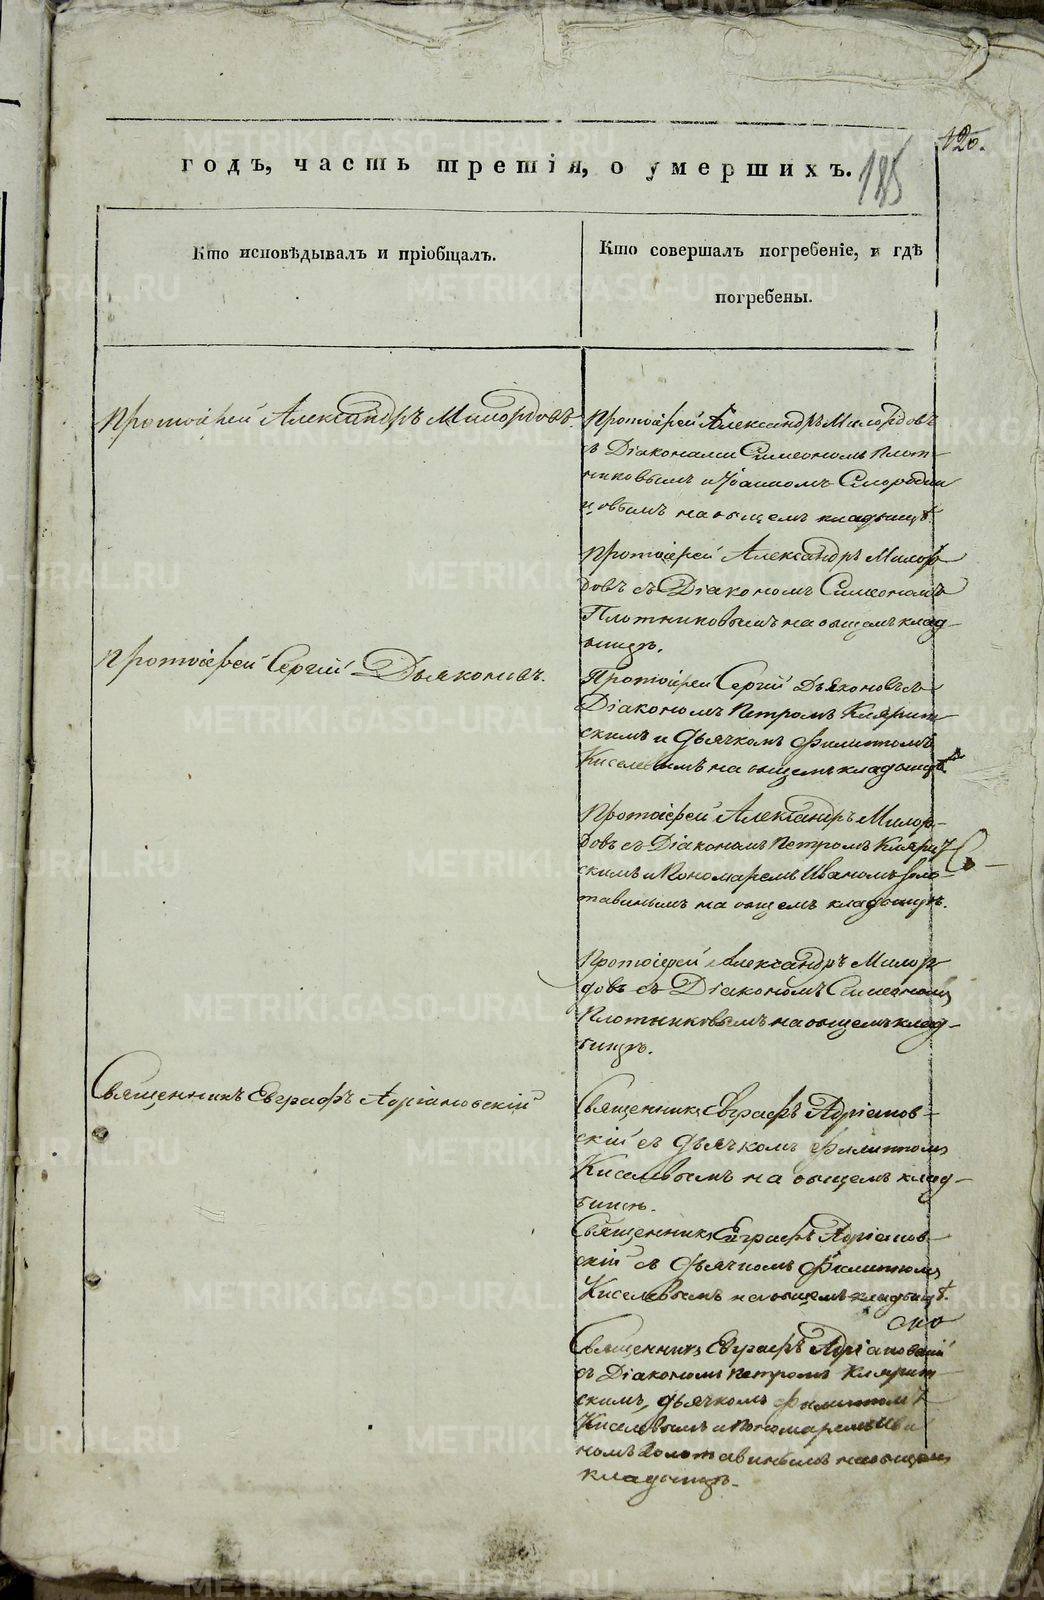 120.
годъ, часть третія, о умершихъ.
185
Кто исповѣдывалъ и пріобщалъ.
Кто совершалъ погребеніе, и гдѣ
погребены.
Протоіерей Александръ Милордовъ.
Протоіерей Александръ Милордовъ
съ Діаконами Симеономъ Плот-
никовымъ и Іоанномъ Смородин
цовымъ на общемъ кладбищѣ.
Протоіерей Александръ Милор
довъ съ Діакономъ Симеономъ
Плотниковымъ на общемъ клад-
бищѣ.
Протоіерей Сергій Дьяконовъ.
Протоіерей Сергій Дьяконовъ съ
Діакономъ Петромъ Клярит
скимъ и дьячкомъ Филиппомъ
Киселевымъ на общемъ кладбищѣ.
Протоіерей Александръ Милор-
довъ съ Діакономъ Петромъ Кляри
скимъ и Пономаремъ Иваномъ Золо-
тавинымъ на общемъ кладбищѣ.
Протоіерей Александръ Милор
довъ съ Діакономъ Симеономъ
Плотниковымъ на общемъ клад-
бищѣ.
Священникъ Евграфъ Адріановскій
Священникъ Евграфъ Адріанов-
скій съ дьячкомъ Филиппомъ
Киселевымъ на общемъ клад-
бищѣ.
Священникъ Евграфъ Адріанов-
скій съ дьячкомъ Филиппомъ
Киселевымъ на общемъ кладбищѣ.
Священникъ Евграфъ Адріановскій
съ Діакономъ Петромъ Клярит-
скимъ, дьячкомъ Филиппомъ
Киселевымъ и Пономаремъ Ива
номъ Золотавинымъ на общемъ
кладбищѣ.
METRIKI.GASO-URAL.RU